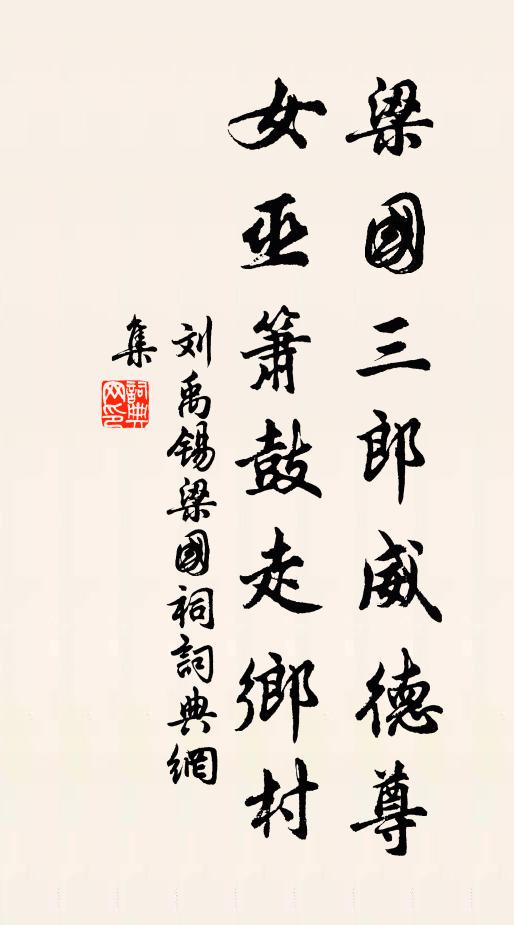 梁國三郎威德尊
女巫簫鼓走鄉村
刘禹锡梁國祠詞典網
集
詞典
网印